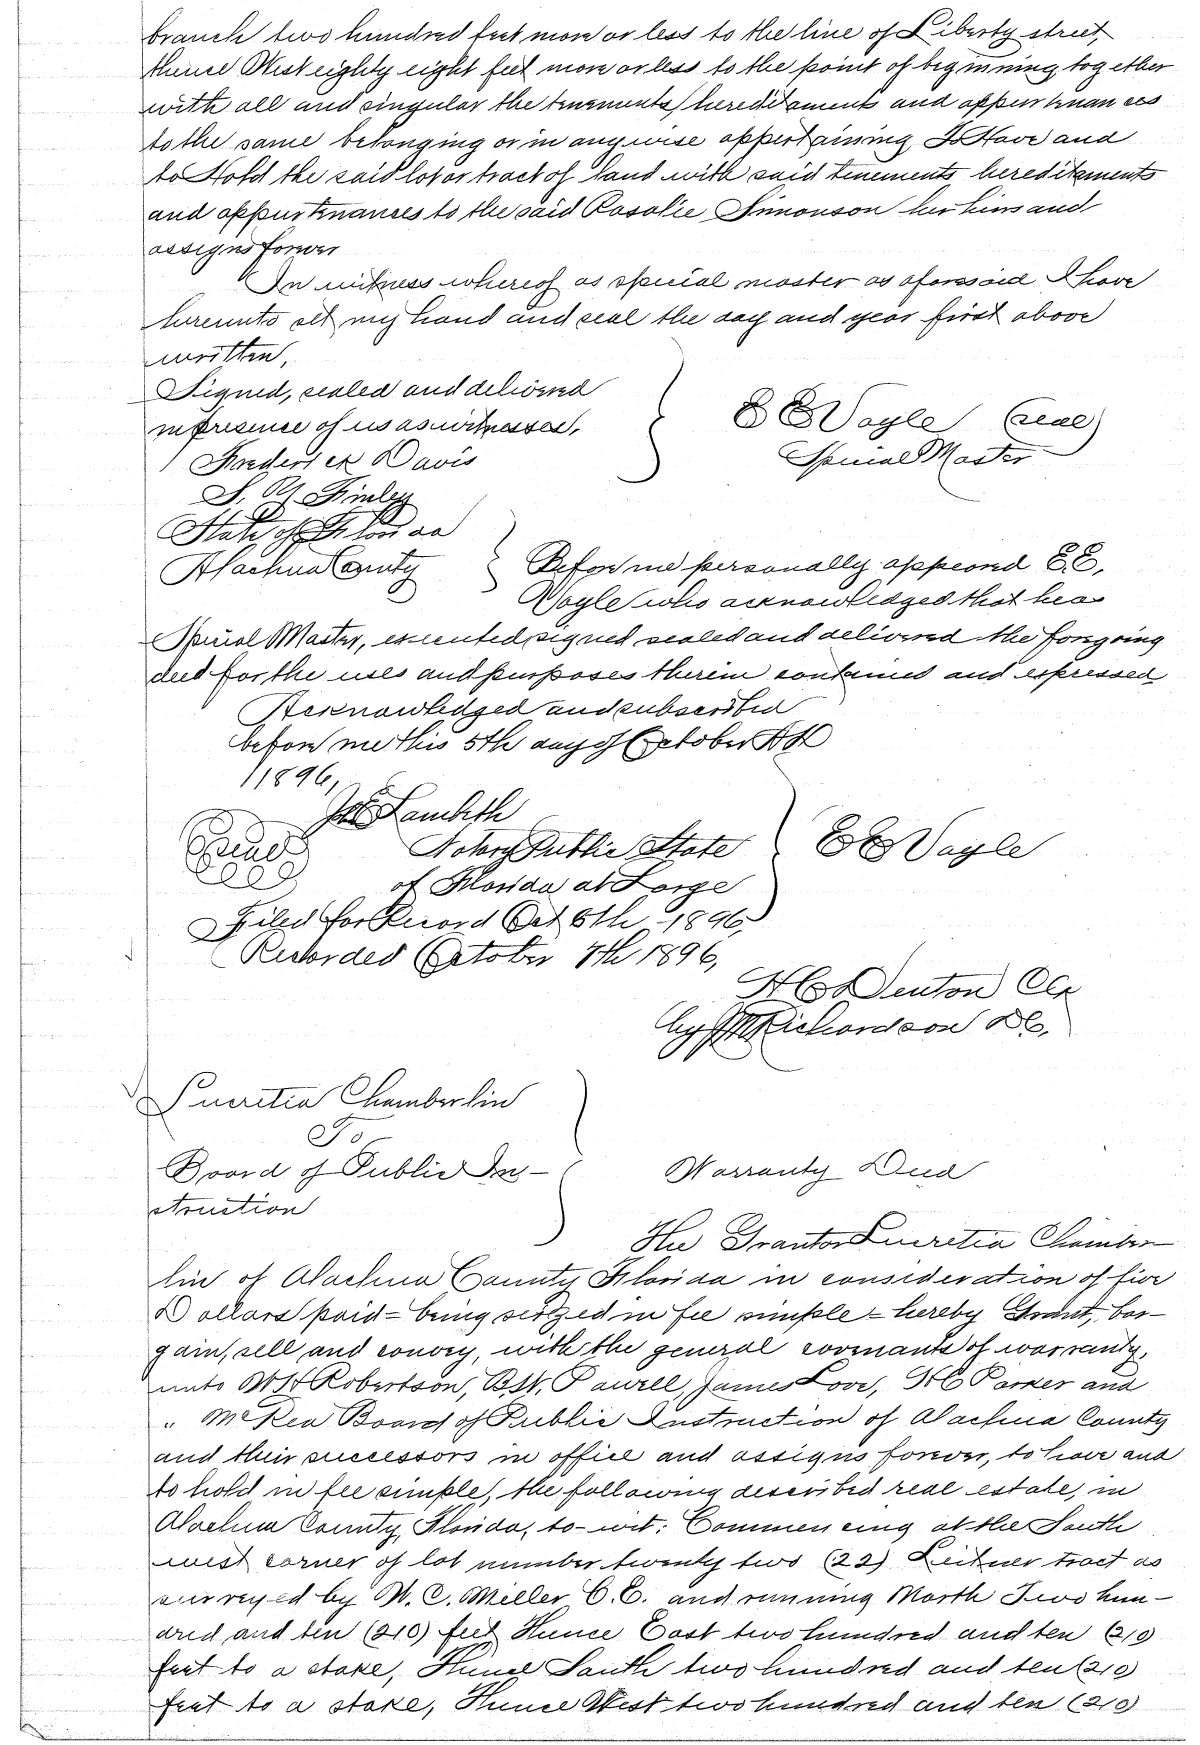 branch two hundred feet more or less to the line of Liberty street,
thence West eighty eight feet more or less to the point of beginning, together
with all and singular the tenements, hereditaments and appurtenances
to the same belonging or in any wise appertaining To Have and
to Hold the said lot or tract of land with said tenements hereditaments
and appurtenances to the said Rosalie Simonson her heirs and
assigns forever
In witness whereof as special master as aforesaid I have
hereunto set my hand and seal the day and year first above
written,
Signed, sealed and delivered
in presence of us as witnesses,
Frederick Davis
S. Y. Finley
E E Voyle (seal)
Special Master
State of Florida
Alachua County
Before me personally appeared E.E.
Voyle who acknowledged that he as
Special Master, executed, signed sealed and delivered the foregoing
deed for the uses and purposes therein contained and expressed
Acknowledged and subscribed
before me this 5th day of October A D
1896,
Lambeth
Seal
Notary Public State
of Florida at Large
E E Voyle
Filed for Record Oct 6th 1896,
Recorded October 7th 1896,
H C Denton Clk
by Richardson D C.
Lucretia Chamberlin
To
Board of Public In-
struction
Warranty Deed
The Grantor Lucretia Chamber-
lin of Alachua County Florida in consideration of five
Dollars paid = being seized in fee simple = hereby Grant, bar-
gain, sell and convey, with the general covenants of warranty,
unto W H Robertson, B.W. Powell, James Love, H C Parker and
" McRea Board of Public Instruction of Alachua County
and their successors in office and assigns forever, to have and
to hold in fee simple, the following described real estate, in
Alachua County, Florida, to-wit: Commencing at the South
west corner of lot number twenty two (22) Leitner tract as
surveyed by W. C. Miller C.E. and running North Two hun-
dred and ten (210) feet Thence East two hundred and ten (210)
feet to a stake, Thence South two hundred and ten (210)
feet to a stake, Thence West two hundred and ten (210)